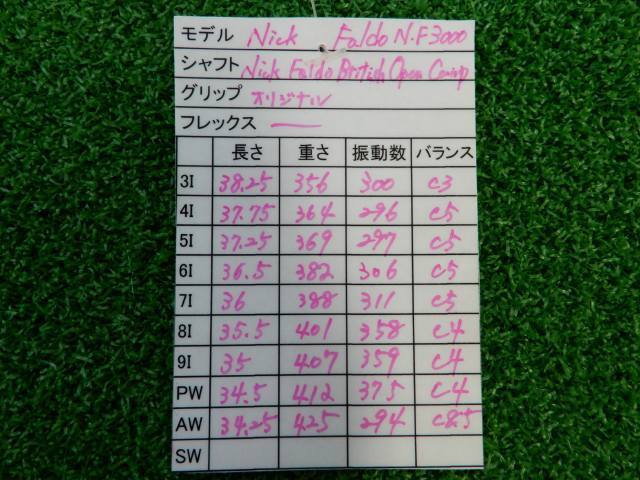 モデル Nick Faldo N.F3000
シャフト Nick Faldo British Open Comp
グリップ オリジナル
フレックス ー
長さ 重さ 振動数 バランス
3I 38.25 356 300 C3
4I 37.75 364 296 C5
5I 37.25 369 297 C5
6I 36.5 382 306 C5
7I 36 388 311 C5
8I 35.5 401 358 C4
9I 35 407 359 C4
PW 34.5 412 375 C4
AW 34.25 425 294 C8.5
SW